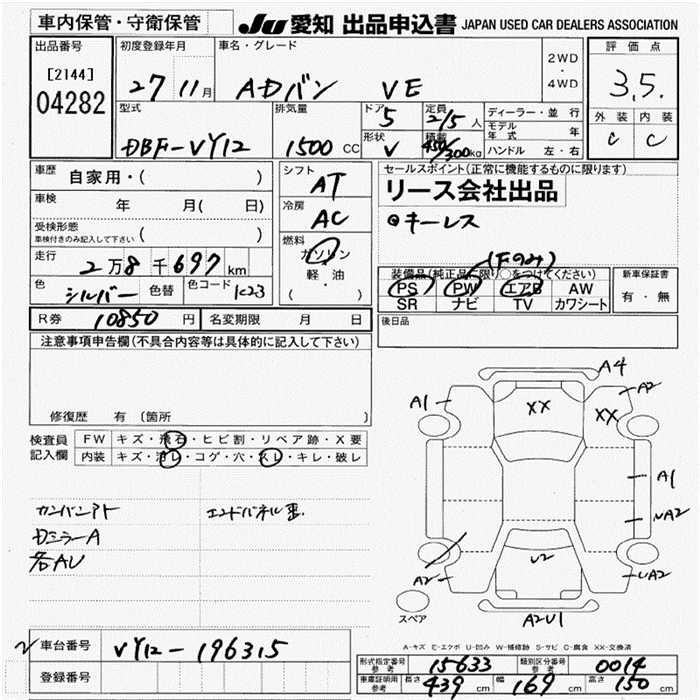 車内保管・守衛保管 JU 愛知 出品申込書 JAPAN USED CAR DEALERS ASSOCIATION
出品番号 初度登録年月 車名・グレード 2WD・4WD 評価点
[2144] 04282 27 11月 ADバン VE 3.5.
外装 内装
C C
型式 排気量 ドア 5 定員 2/5人 ディーラー・並行
モデル年式 年
DBF-VY12 1500 CC 形状 V 積載 450/300kg ハンドル 左・右
車歴 自家用・( ) シフト AT セールスポイント(正常に機能するものに限ります)
リース会社出品
車検 年 月( 日) 冷房 AC キーレス
受検形態 車検付きのみ記入して下さい ( )
走行 2万8千697km 燃料 ガソリン 軽油 ( ・ )
(Fのみ)
装備品(純正品に限り○をつけてください) 新車保証書
PS PW エアB AW 有・無
SR ナビ TV カワシート
色 シルバー 色替 色コード K23
R券 10850円 名変期限 月 日 後日品
注意事項申告欄(不具合内容等は具体的に記入して下さい)
修復歴 有 (箇所 )
検査員記入欄 FW キズ・飛石・ヒビ割・リペア跡・X要
内装 キズ・汚レ・コゲ・穴・スレ・キレ・破レ
カンバンアト エンドパネル歪
Dミラー A
各AU
A4
A1 XX XX A2
A1
UA2
A2 U2 UA2
スペア A2U1
A-キズ E-エクボ U-凹み W-補修跡 S-サビ C-腐食 XX-交換済
車台番号 VY12-196315
登録番号
形式指定番号 参考 15633 類別区分番号 参考 0014
車庫証明用 参考 長さ 439cm 幅 169cm 高さ 150cm